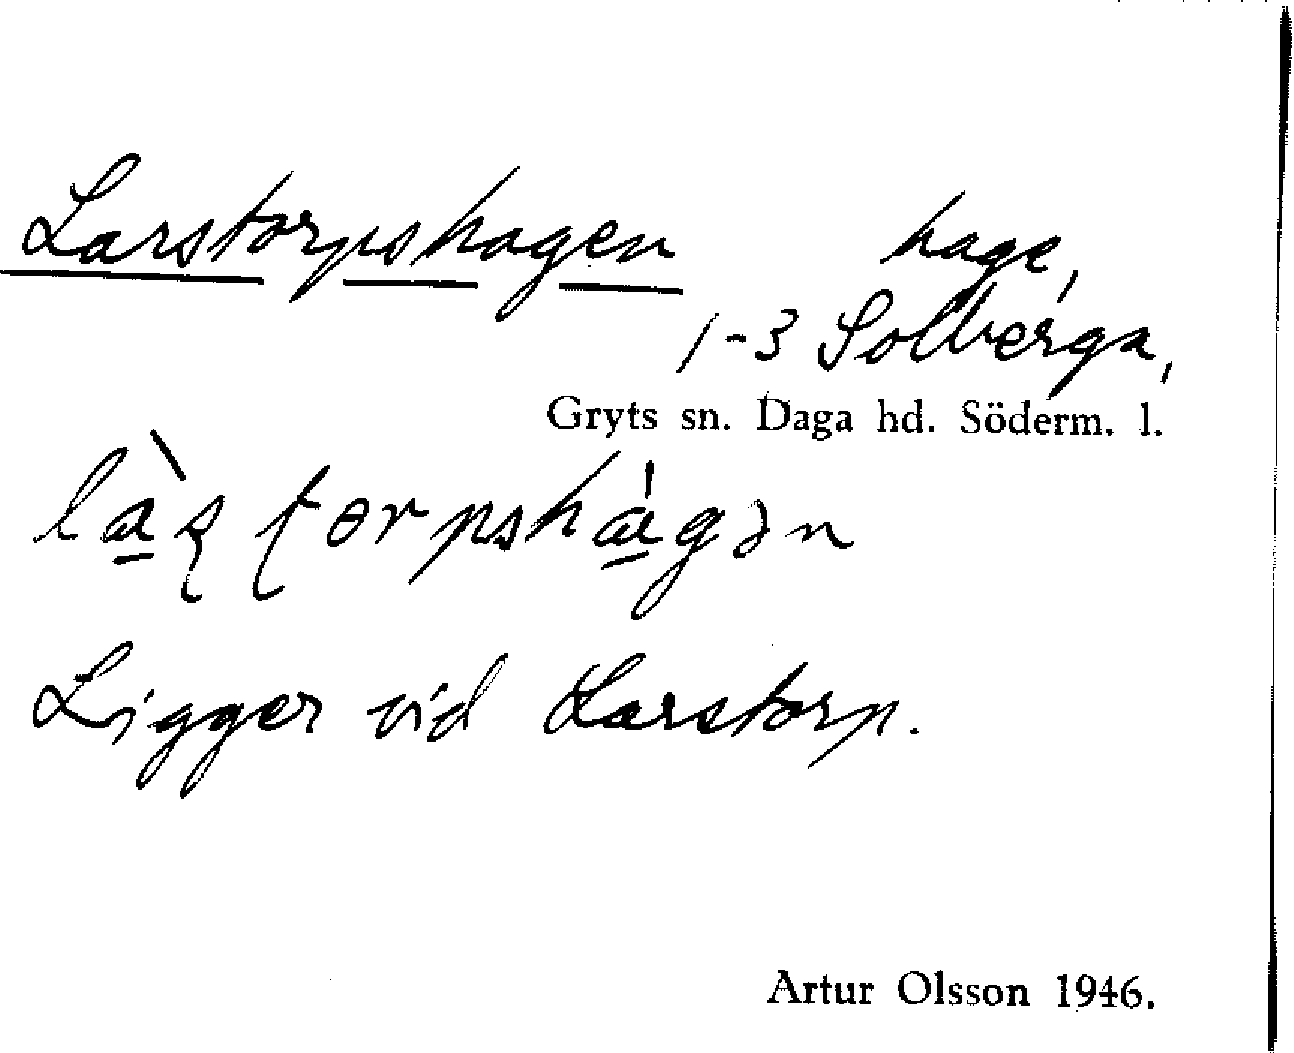 Larstorpshagen hage,
1-3 Solberga,
Gryts sn. Daga hd. Söderm. l.
Ligger vid Larstorp.
Artur Olsson 1946.